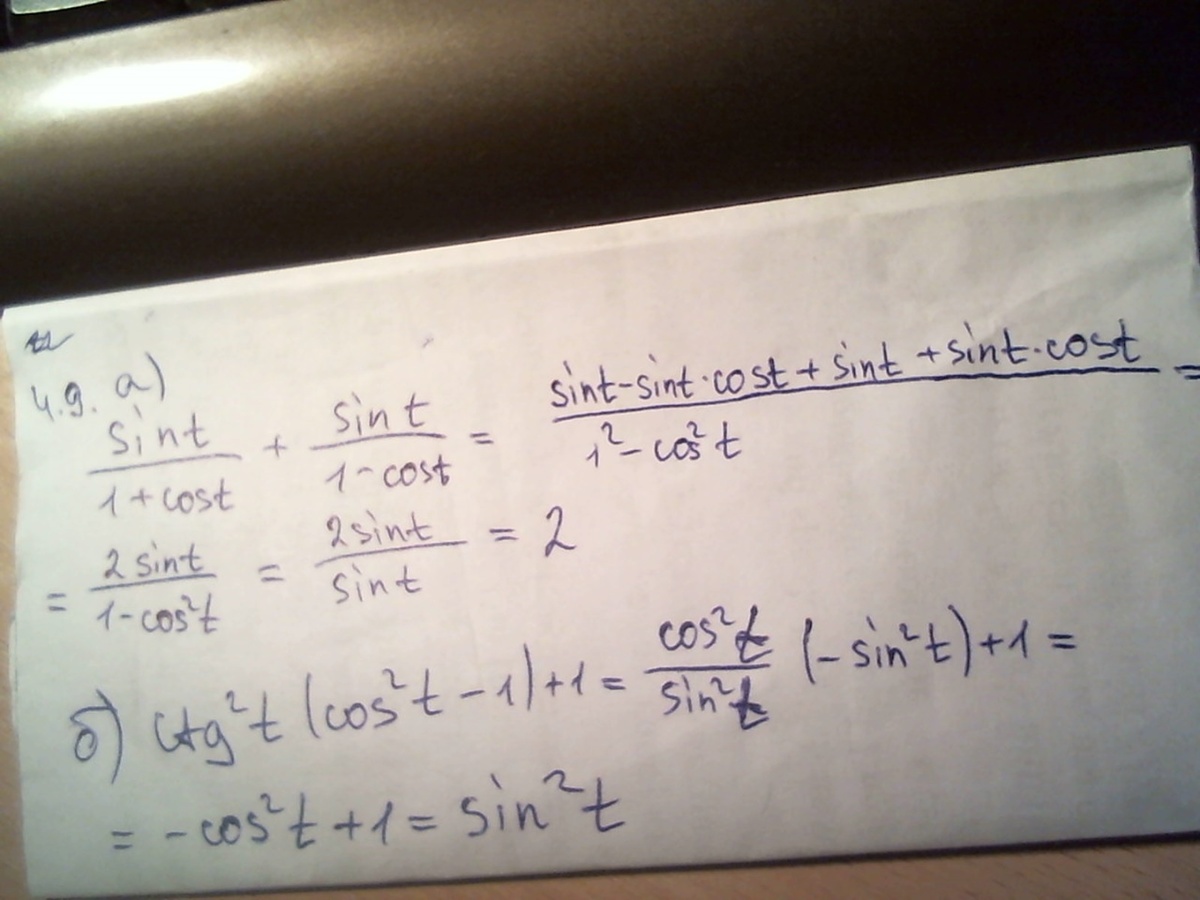 4.9. а)
sin t / (1 + cos t) + sin t / (1 - cos t) = (sin t - sin t · cos t + sin t + sin t · cos t) / (1² - cos² t) =
= 2 sin t / (1 - cos² t) = 2 sin t / sin t = 2
б) ctg² t (cos² t - 1) + 1 = cos² t / sin² t (- sin² t) + 1 =
= - cos² t + 1 = sin² t